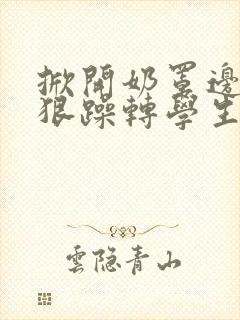 掀開奶罩邊
狠躁轉學生
雲隐青山